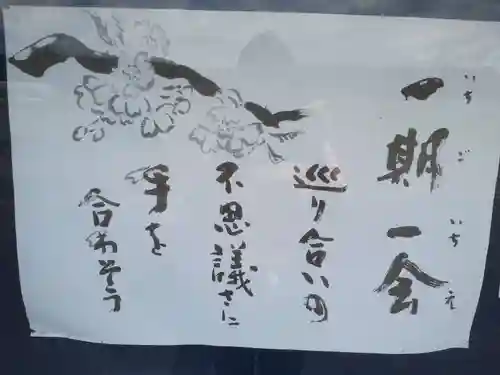 一期一会
いちごいちえ
巡り合いの
不思議さに
手を
合わせよう